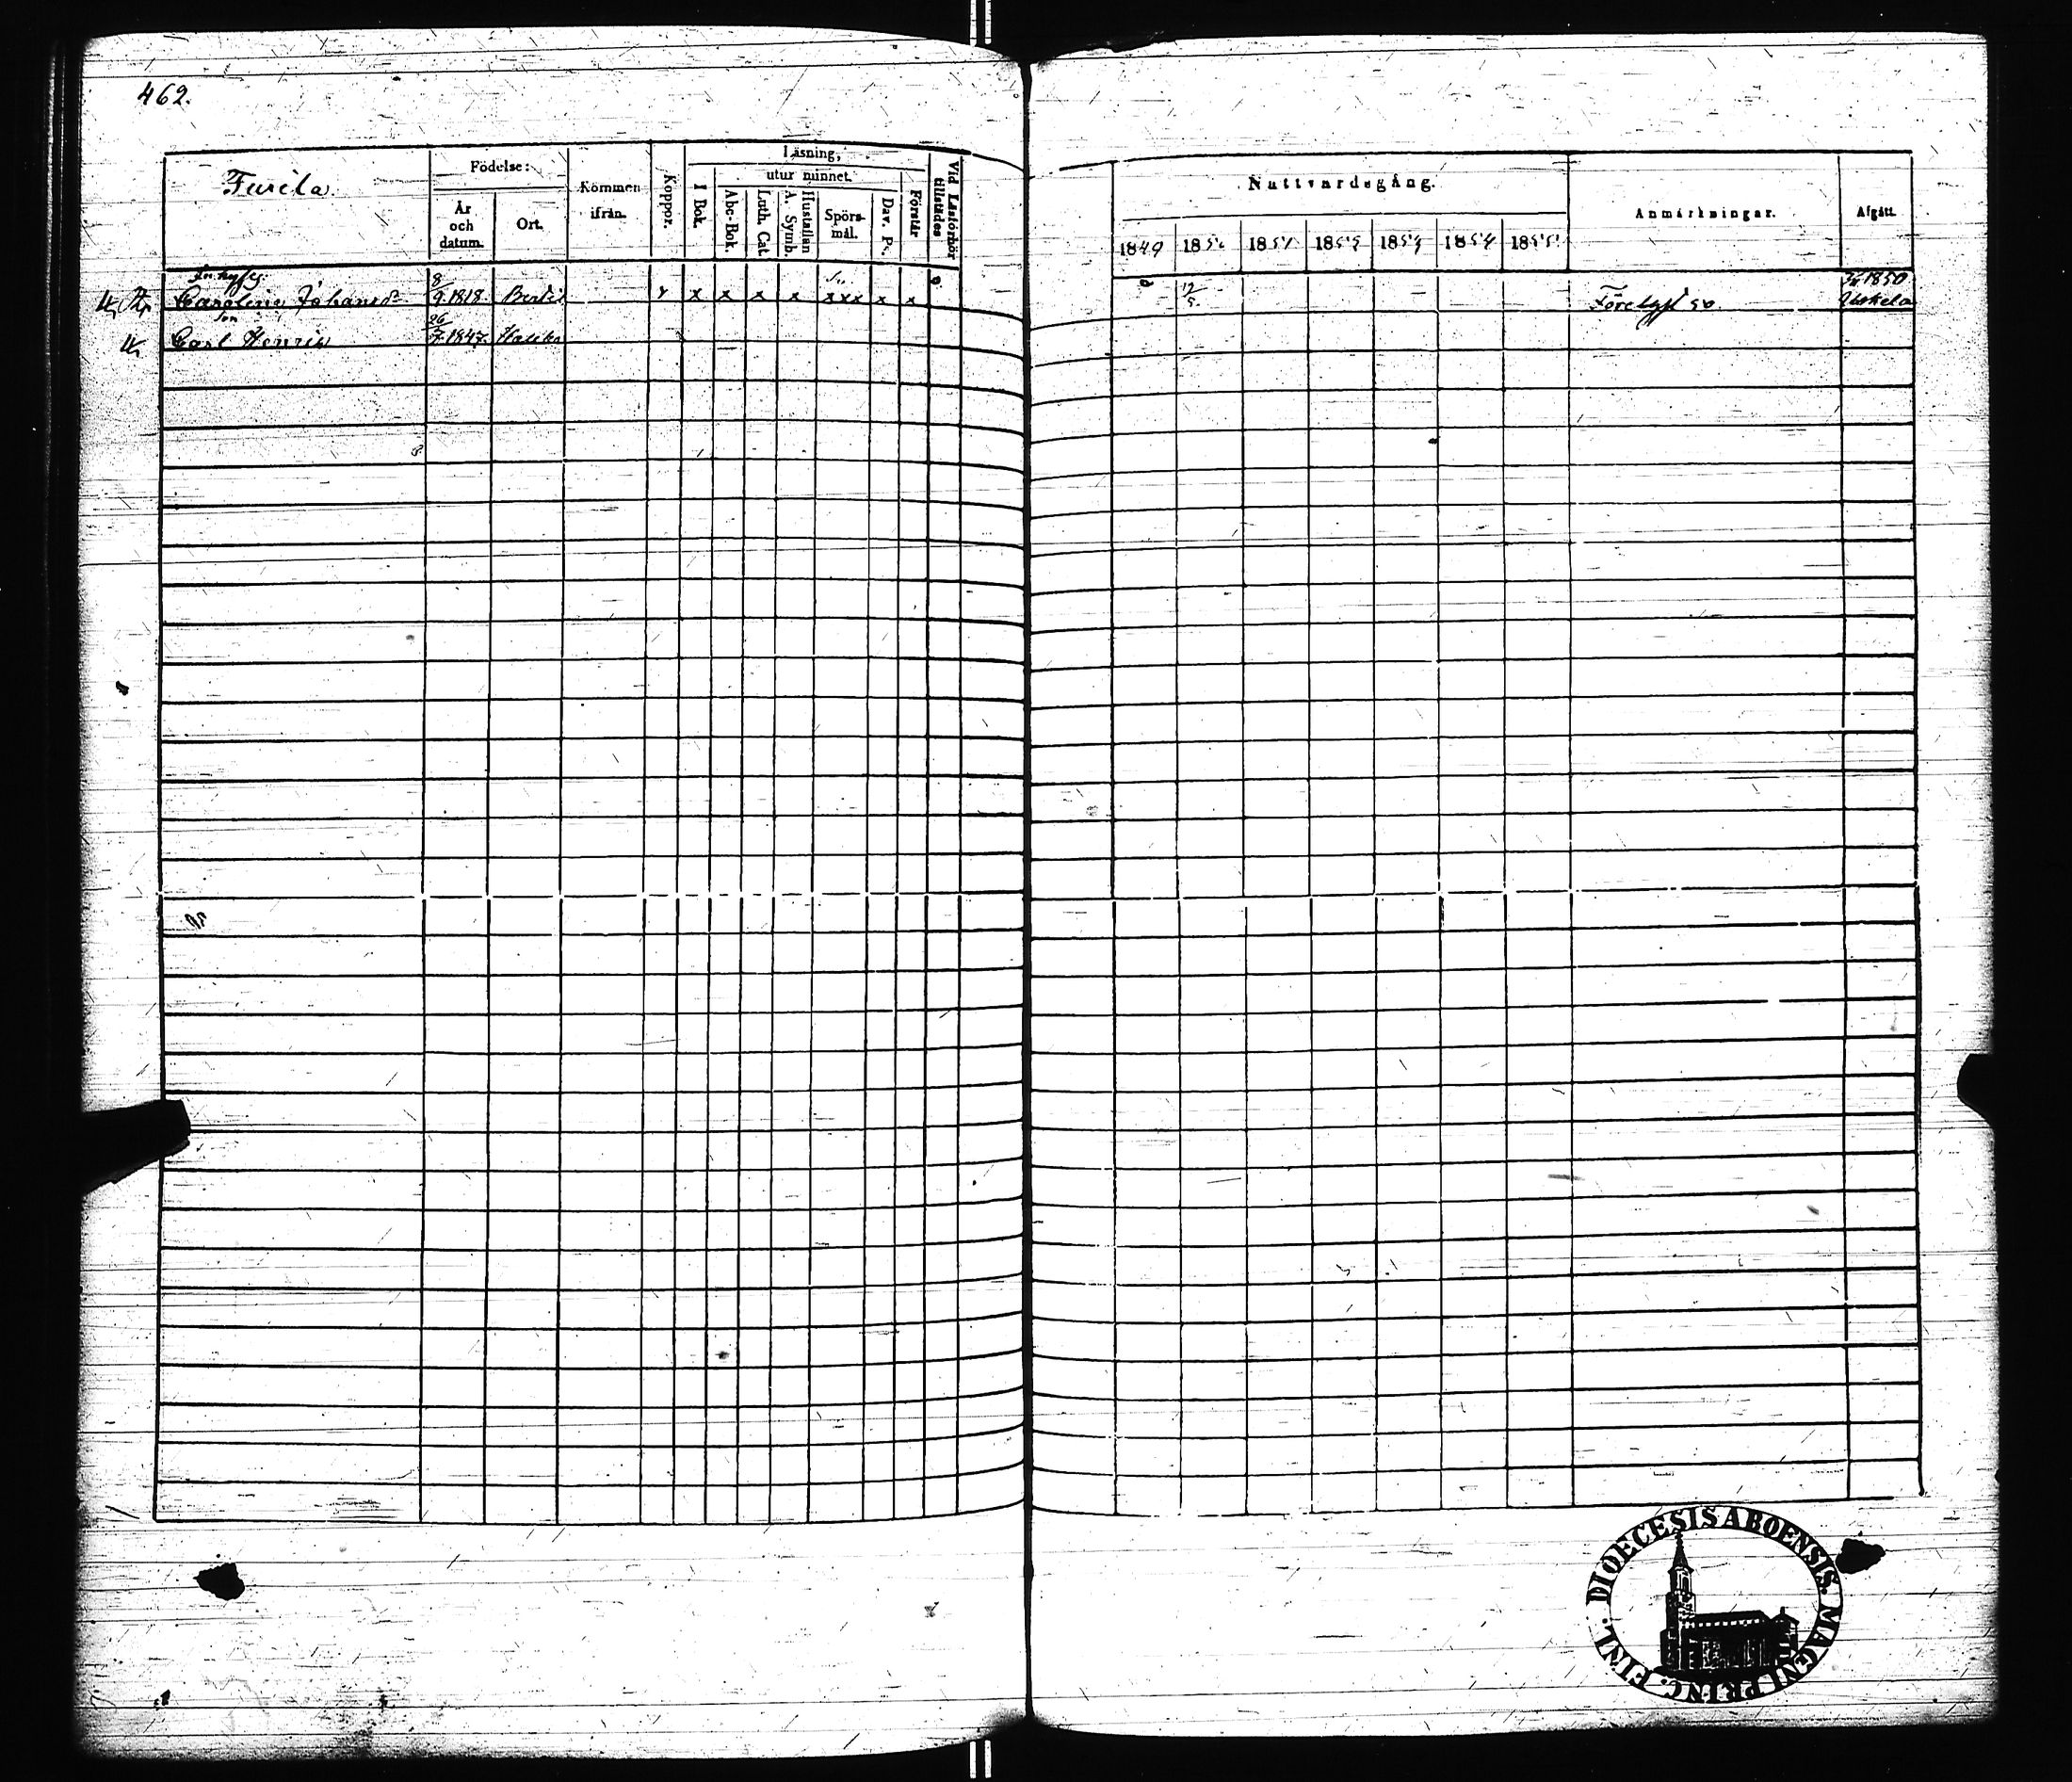 462.
Födelse:
Kommen ifrån.
Koppor.
Läsning,
utur minnet.
I Bok.
Abc-Bok.
Luth. Cat.
Hustaflan A. Symb.
Spörs-mål.
Dav. Ps.
Förstår
Vid Läsförhör tillstädes
År och datum.
Ort.
Nattvardsgång.
Anmärkningar.
Afgått.
1849 1850 1851 1852 1853 1854 1855
Carolina Johansd:r 8/9 1818 x x x x xxx x x 12/5 Förelyst 50. 1850 Uskela
son
Carl Henric 26/7 1847 Halikko
DIOECESIS ABOENSIS. MAGNI PRINC. FINL.